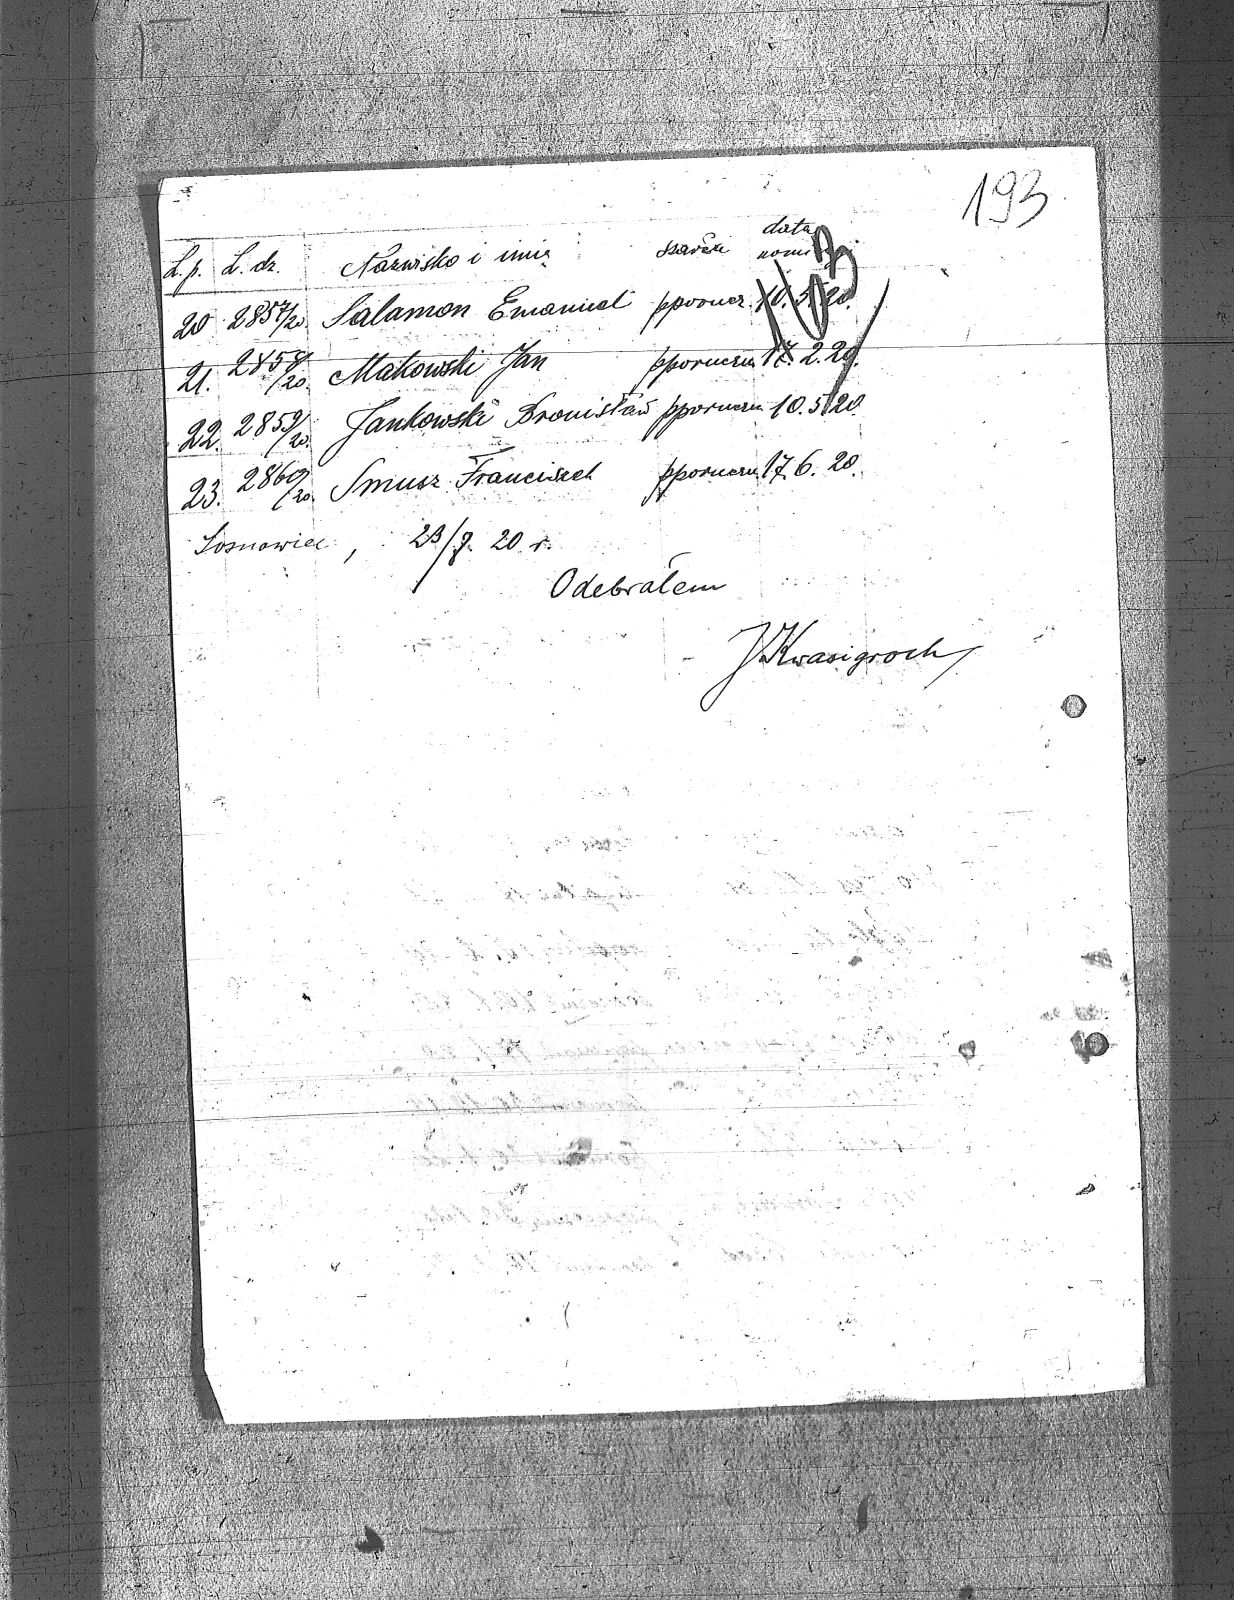 193
L.p. L. dz. Nazwisko i imię szarża data nomi
20 2857/20. Salamon Emanuel pporucz. 10.5.20.
21. 2858/20. Makowski Jan pporuczn. 17.2.20.
22. 2859/20. Jankowski Bronisław pporuczn. 10.5.20.
23. 2860/20. Smusz Franciszek pporuczn. 17.6.20.
Sosnowiec, 23/9. 20 r.
Odebrałem
J Kwasigroch